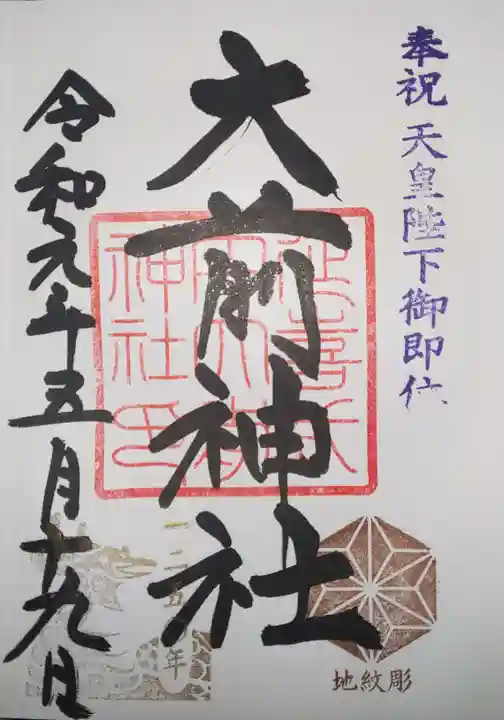 奉祝 天皇陛下御即位
大前神社
令和元年五月十九日
延喜式
内大前
神社印
一二五〇
年
地紋彫